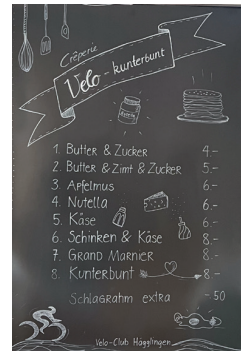 Crêperie
Velo - kunterbunt
1. Butter & Zucker 4.-
2. Butter & Zimt & Zucker 5.-
3. Apfelmus 6.-
4. Nutella 6.-
5. Käse 6.-
6. Schinken & Käse 8.-
7. Grand Marnier 8.-
8. Kunterbunt 8.-
Schlagrahm extra -50
Velo-Club Hägglingen